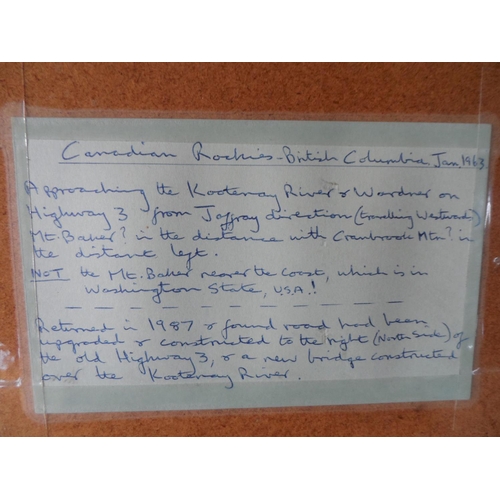 Canadian Rockies - British Columbia Jan 1963
Approaching the Kootenay River & Wardner on
Highway 3 from Jaffray direction (travelling Westwards)
Mt. Baker? in the distance with Cranbrook Mtn? in
the distant left.
NOT the Mt. Baker nearer the coast, which is in
Washington State, U.S.A.!
Returned in 1987 & found road had been
upgraded & constructed to the right (North Side) of
the old Highway 3, & a new bridge constructed
over the Kootenay River.